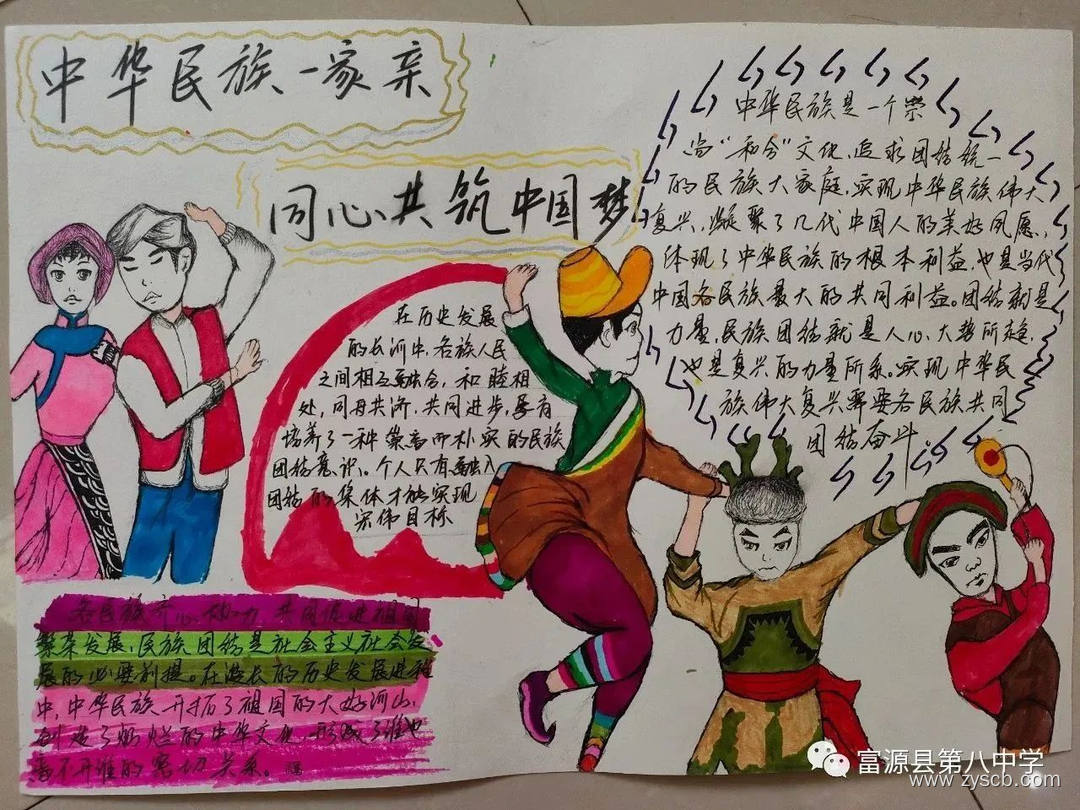 中华民族一家亲
同心共筑中国梦
中华民族是一个崇
尚“和合”文化、追求团结统一
的民族大家庭,实现中华民族伟大
复兴,凝聚了几代中国人的美好夙愿,
体现了中华民族的根本利益,也是当代
中国各民族最大的共同利益。团结就是
力量,民族团结就是人心、大势所趋,
也是复兴的力量所系。实现中华民
族伟大复兴需要各民族共同
团结奋斗。
在历史发展
的长河中,各族人民
之间相互融合,和睦相
处,同舟共济,共同进步,
培养了一种崇高而朴实的民族
团结意识。个人只有融入
团结的集体才能实现
宏伟目标
各民族齐心协力共同促进祖国
繁荣发展,民族团结是社会主义社会发
展的必要前提。在漫长的历史发展进程
中,中华民族开拓了祖国的大好河山,
创造了灿烂的中华文化,形成了谁也
离不开谁的密切关系。
富源县第八中学
www.zyscb.com